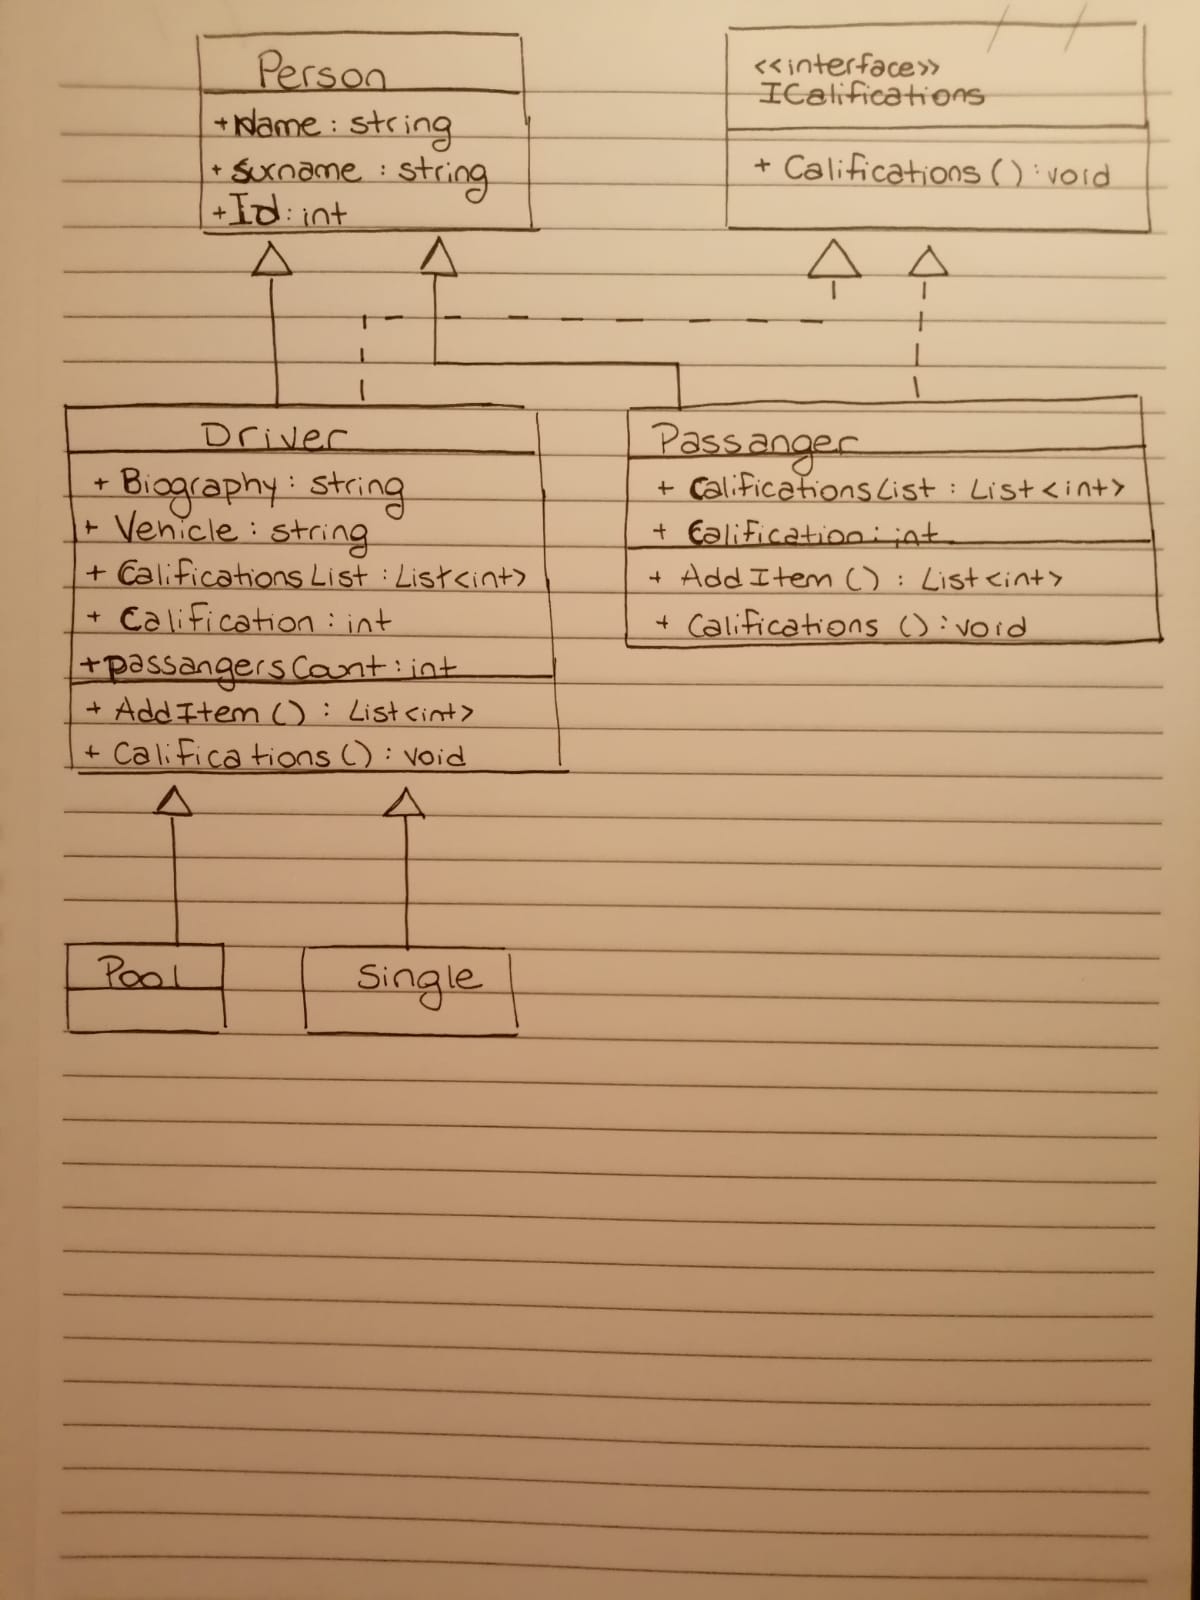 Person
+ Name : string
+ Surname : string
+ Id : int
<<interface>>
ICalifications
+ Califications () : void
Driver
+ Biography : string
+ Vehicle : string
+ CalificationsList : List<int>
+ Calification : int
+ passangersCount : int
+ AddItem () : List<int>
+ Califications () : void
Passanger
+ CalificationsList : List<int>
+ Calification : int
+ AddItem () : List<int>
+ Califications () : void
Pool
Single